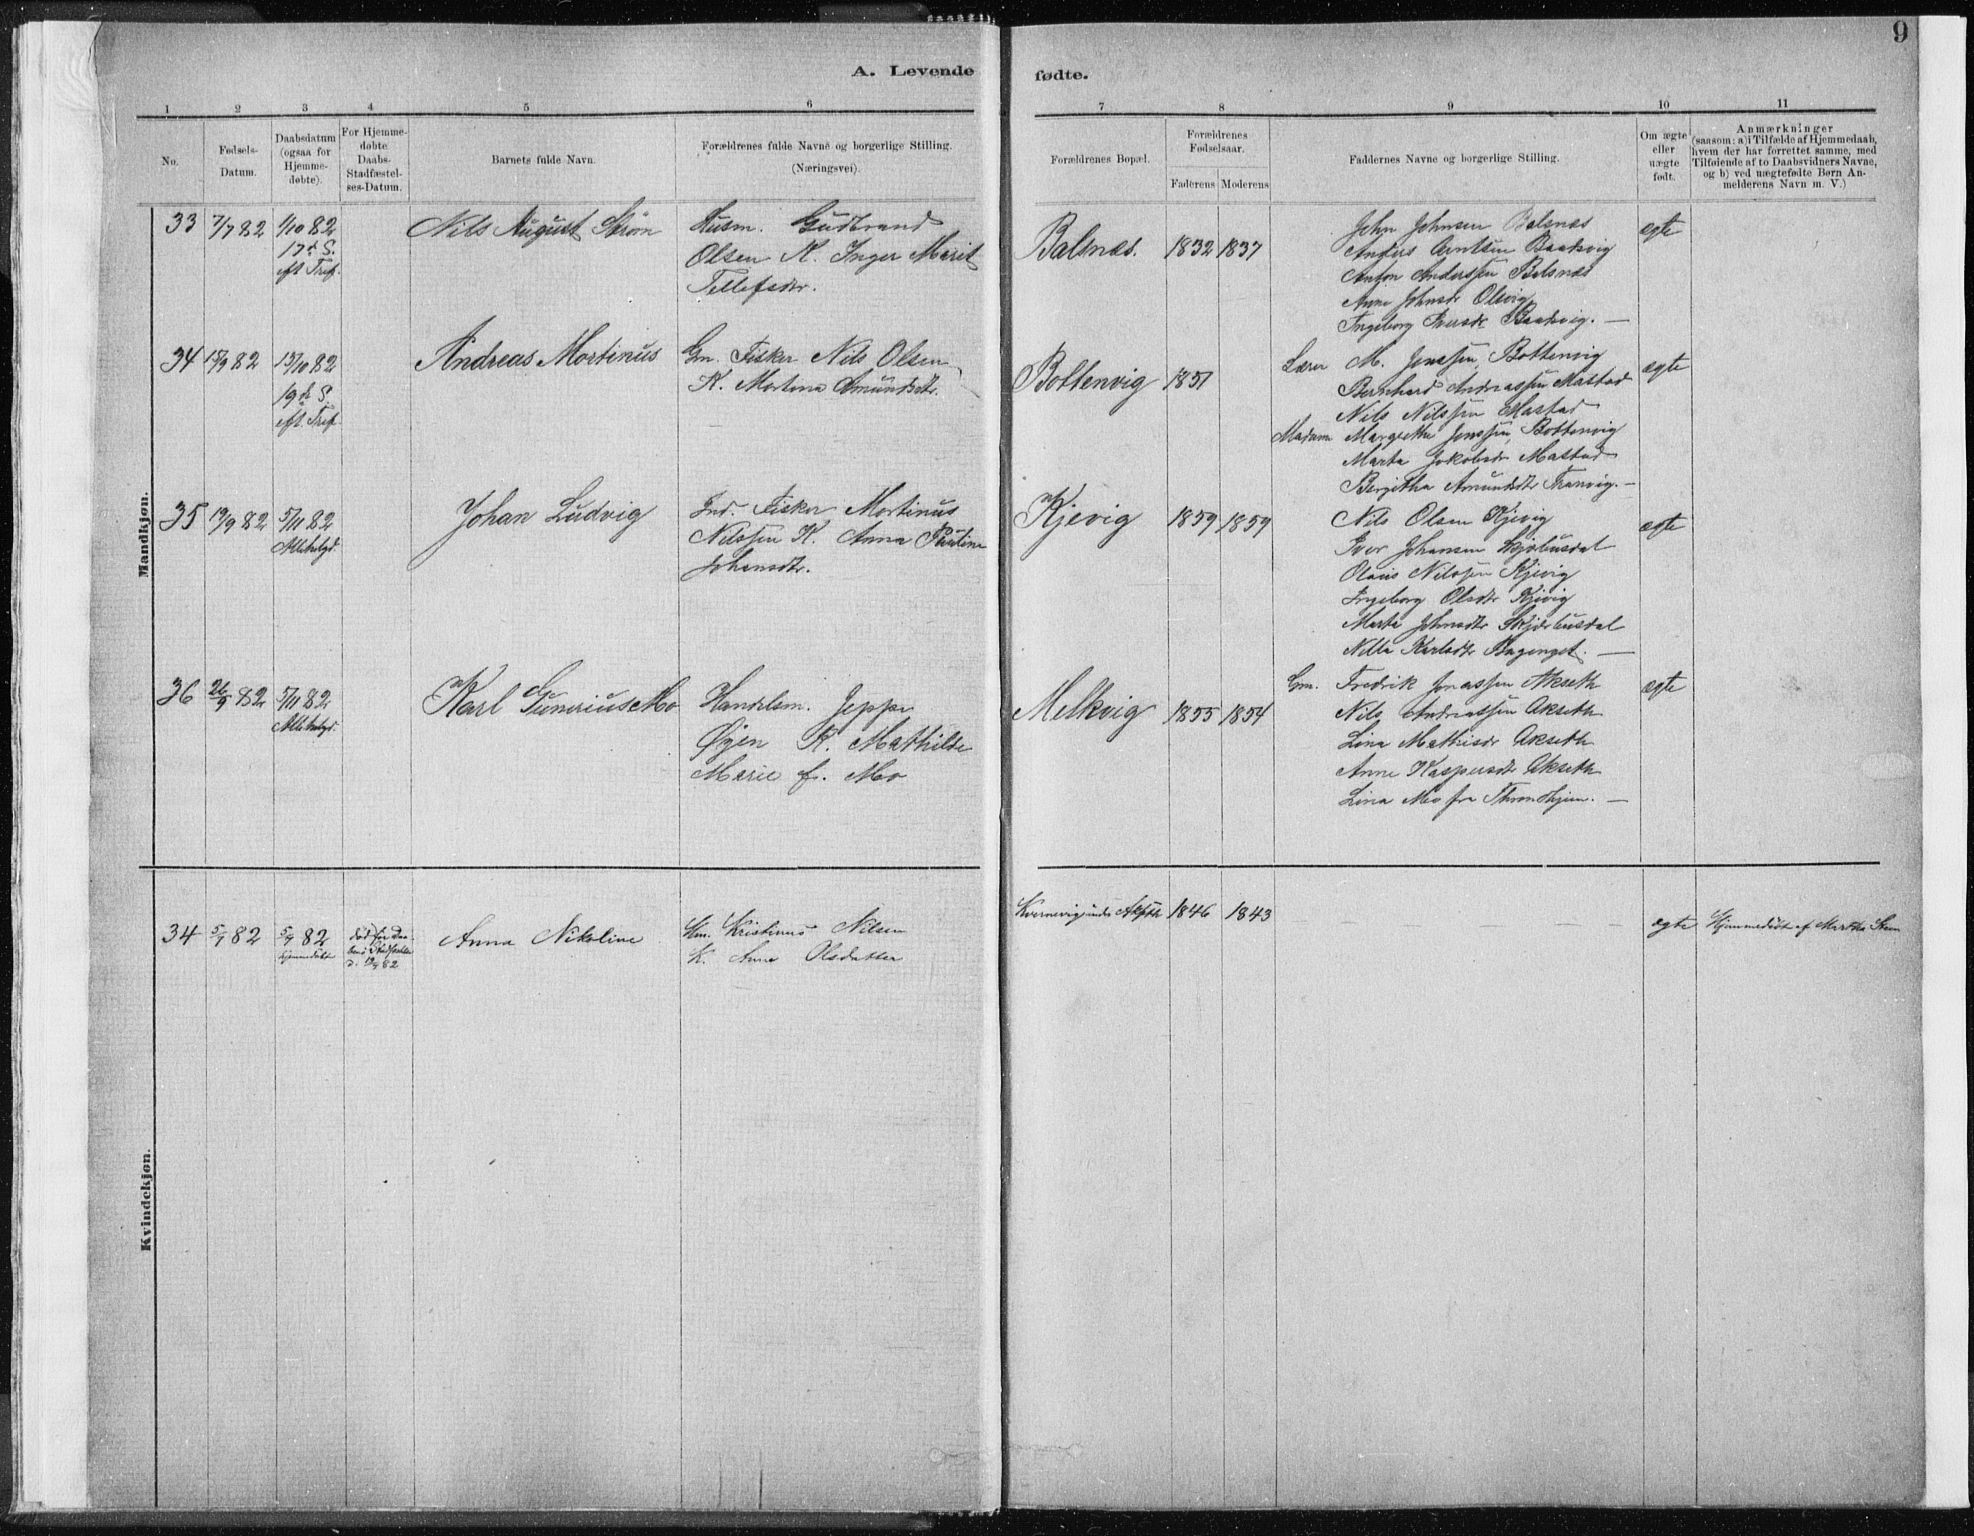 9
A. Levende fødte.
1 2 3 4 5 6 7 8 9 10 11
No.
Fødsels-
Datum.
Daabsdatum
(ogsaa for
Hjemme-
døbte).
For Hjemme-
døbte
Daabs-
Stadfæstel-
ses-Datum.
Barnets fulde Navn.
Forældrenes fulde Navne og borgerlige Stilling.
(Næringsvei).
Forældrenes Bopæl.
Forældrenes
Fødselsaar.
Faderens Moderens
Faddernes Navne og borgerlige Stilling.
Om ægte
eller
uægte
født.
Anmærkninger
(saasom: a) i Tilfælde af Hjemmedaab,
hvem der har forrettet samme, med
Tilføiende af to Daabsvidners Navne,
og b) ved uægtefødte Børn An-
melderens Navn m. V.)
Mandkjøn.
33 7/7 82 1/10 82
17de S.
eft. Tref.
Nils August Strøm
Husm. Gudbrand
Olsen K. Inger Marit
Tellefsdtr.
Balsnæs. 1832 1837
John Johnsen Balsnæs
Anders Arntsen Baakvig
Anton Anderssen Balsnæs
Anne Johnsdr Olsvig
Ingeborg Iversdr Baakvig. —
ægte
34 15/9 82 15/10 82
19de S.
eft. Tref.
Andreas Mortinus
Gm. Fisker Nils Olsen,
K. Martina Amundsdtr.
Bottenvig 1851
Lærer M. Jenssen, Bottenvig
Bernhard Andreassen Mastad
Nils Nilssen Mastad
Madam Margrethe Jenssen, Bottenvig
Marta Jakobsdr Mastad
Bergitha Amundsdtr Tranvig. —
ægte
35 19/9 82 5/11 82
Allehelgd.
Johan Ludvig
Ind. Fisker Mortinus
Nilssen K. Anna
Johansdtr.
Kjevig 1859 1859
Nils Olsen Kjevig
Iver Johansen
Olaus Nilssen Kjevig
Ingeborg Olsdtr Kjevig
Marta Johnsdtr
Nella Karlsdtr
ægte
36 26/9 82 5/11 82
Allehelgd.
Karl Gunerius Mo
Handelsm. Jeppe
Øyen K. Mathilde
Marie f. Mo
Melkvig 1855 1854
Gm. Fredrik Jonassen Akseth
Nils Andreassen Akseth
Lina Mathisdr Akseth
Anne Kaspersdtr Akseth
Lina Mo fra Throndhjem. —
ægte
Kvindekjøn.
34 5/7 82 5/7 82
hjemmedøbt
død før Daa-
bens Stadfæstelse
d. 12/7 82
Anna Nikoline
Hm. Kristinus Nilsen
K. Anne Olsdatter
1846 1843
ægte
Hjemmedøbt af Martha